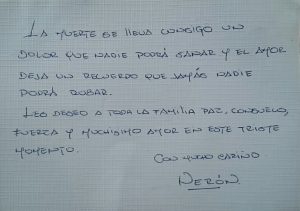 LA MUERTE SE LLEVA CONSIGO UN
DOLOR QUE NADIE PODRÁ SANAR Y EL AMOR
DEJA UN RECUERDO QUE JAMÁS NADIE
PODRÁ ROBAR.
LES DESEO A TODA LA FAMILIA PAZ, CONSUELO,
FUERZA Y MUCHISIMO AMOR EN ESTE TRISTE
MOMENTO.
CON MUCHO CARIÑO
NERÓN.